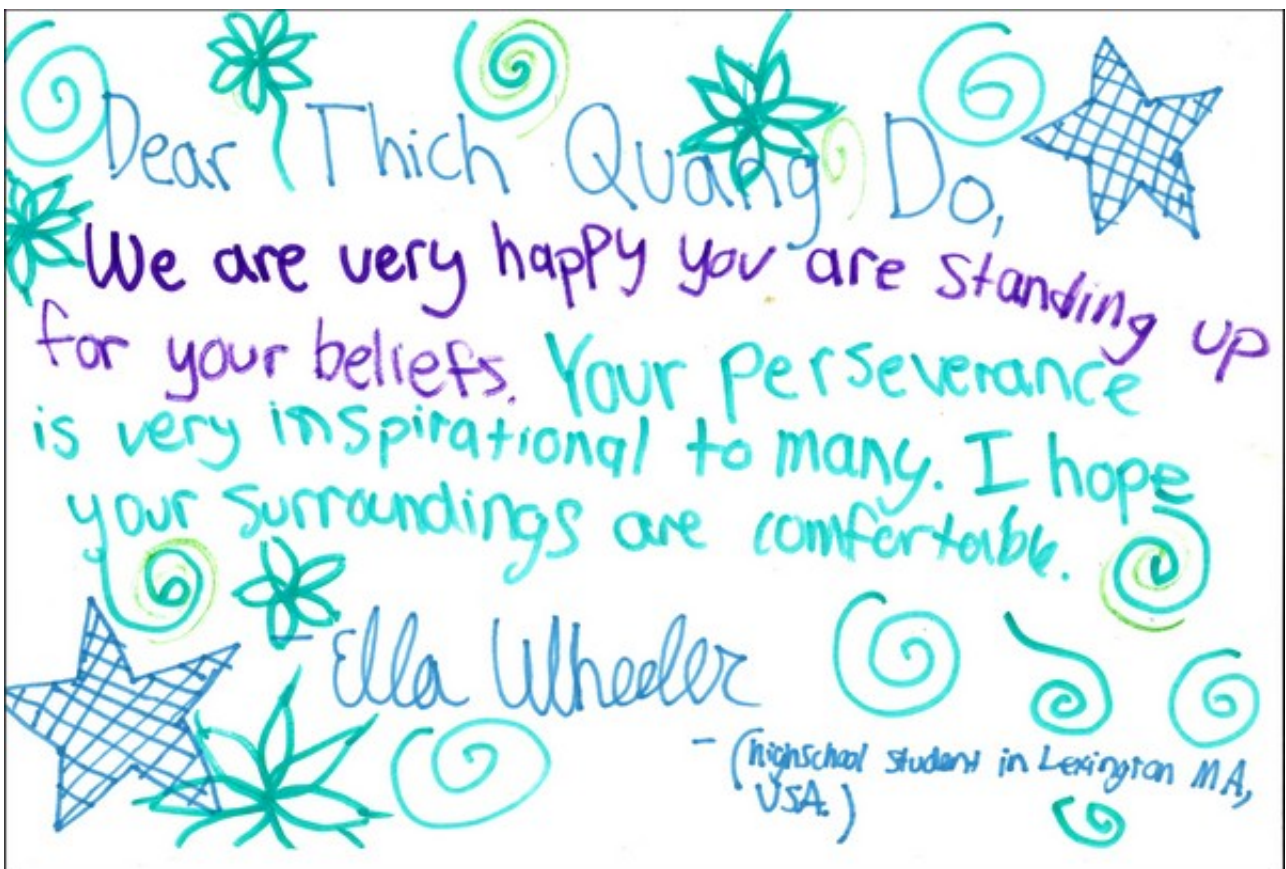 Dear Thich Quang Do,
We are very happy you are standing up
for your beliefs. Your perseverance
is very inspirational to many. I hope
your surroundings are comfertable.
- Ella Wheeler
- (highschool student in Lexington MA,
USA.)